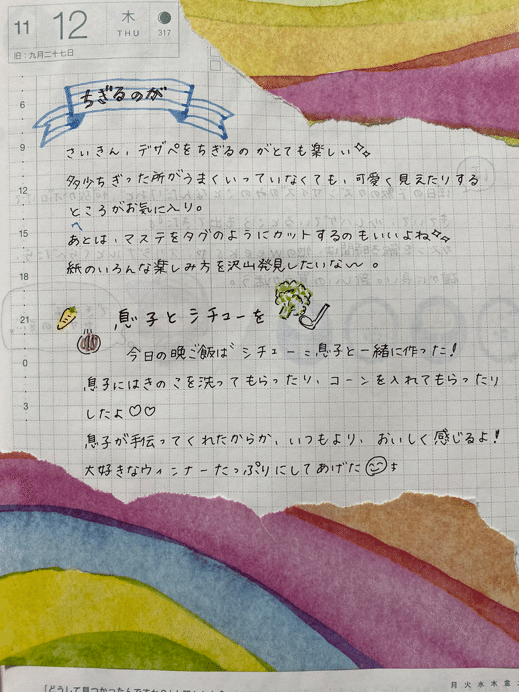 11 12 木 THU 317
旧：九月二十七日
ちぎるのが
6
9
12
15
18
21
0
3
さいきん、デザペをちぎるのがとても楽しい✨
多少ちぎった所がうまくいっていなくても、可愛く見えたりする
ところがお気に入り。
あとは、マステをタグのようにカットするのもいいよね✨
紙のいろんな楽しみ方を沢山発見したいな〜。
息子とシチューを
今日の晩ご飯はシチュー：息子と一緒に作った！
息子にはきのこを洗ってもらったり、コーンを入れてもらったり
したよ♡♡
息子が手伝ってくれたからか、いつもより、おいしく感じるよ！
大好きなウィンナーたっぷりにしてあげた
月 火 水 木 金